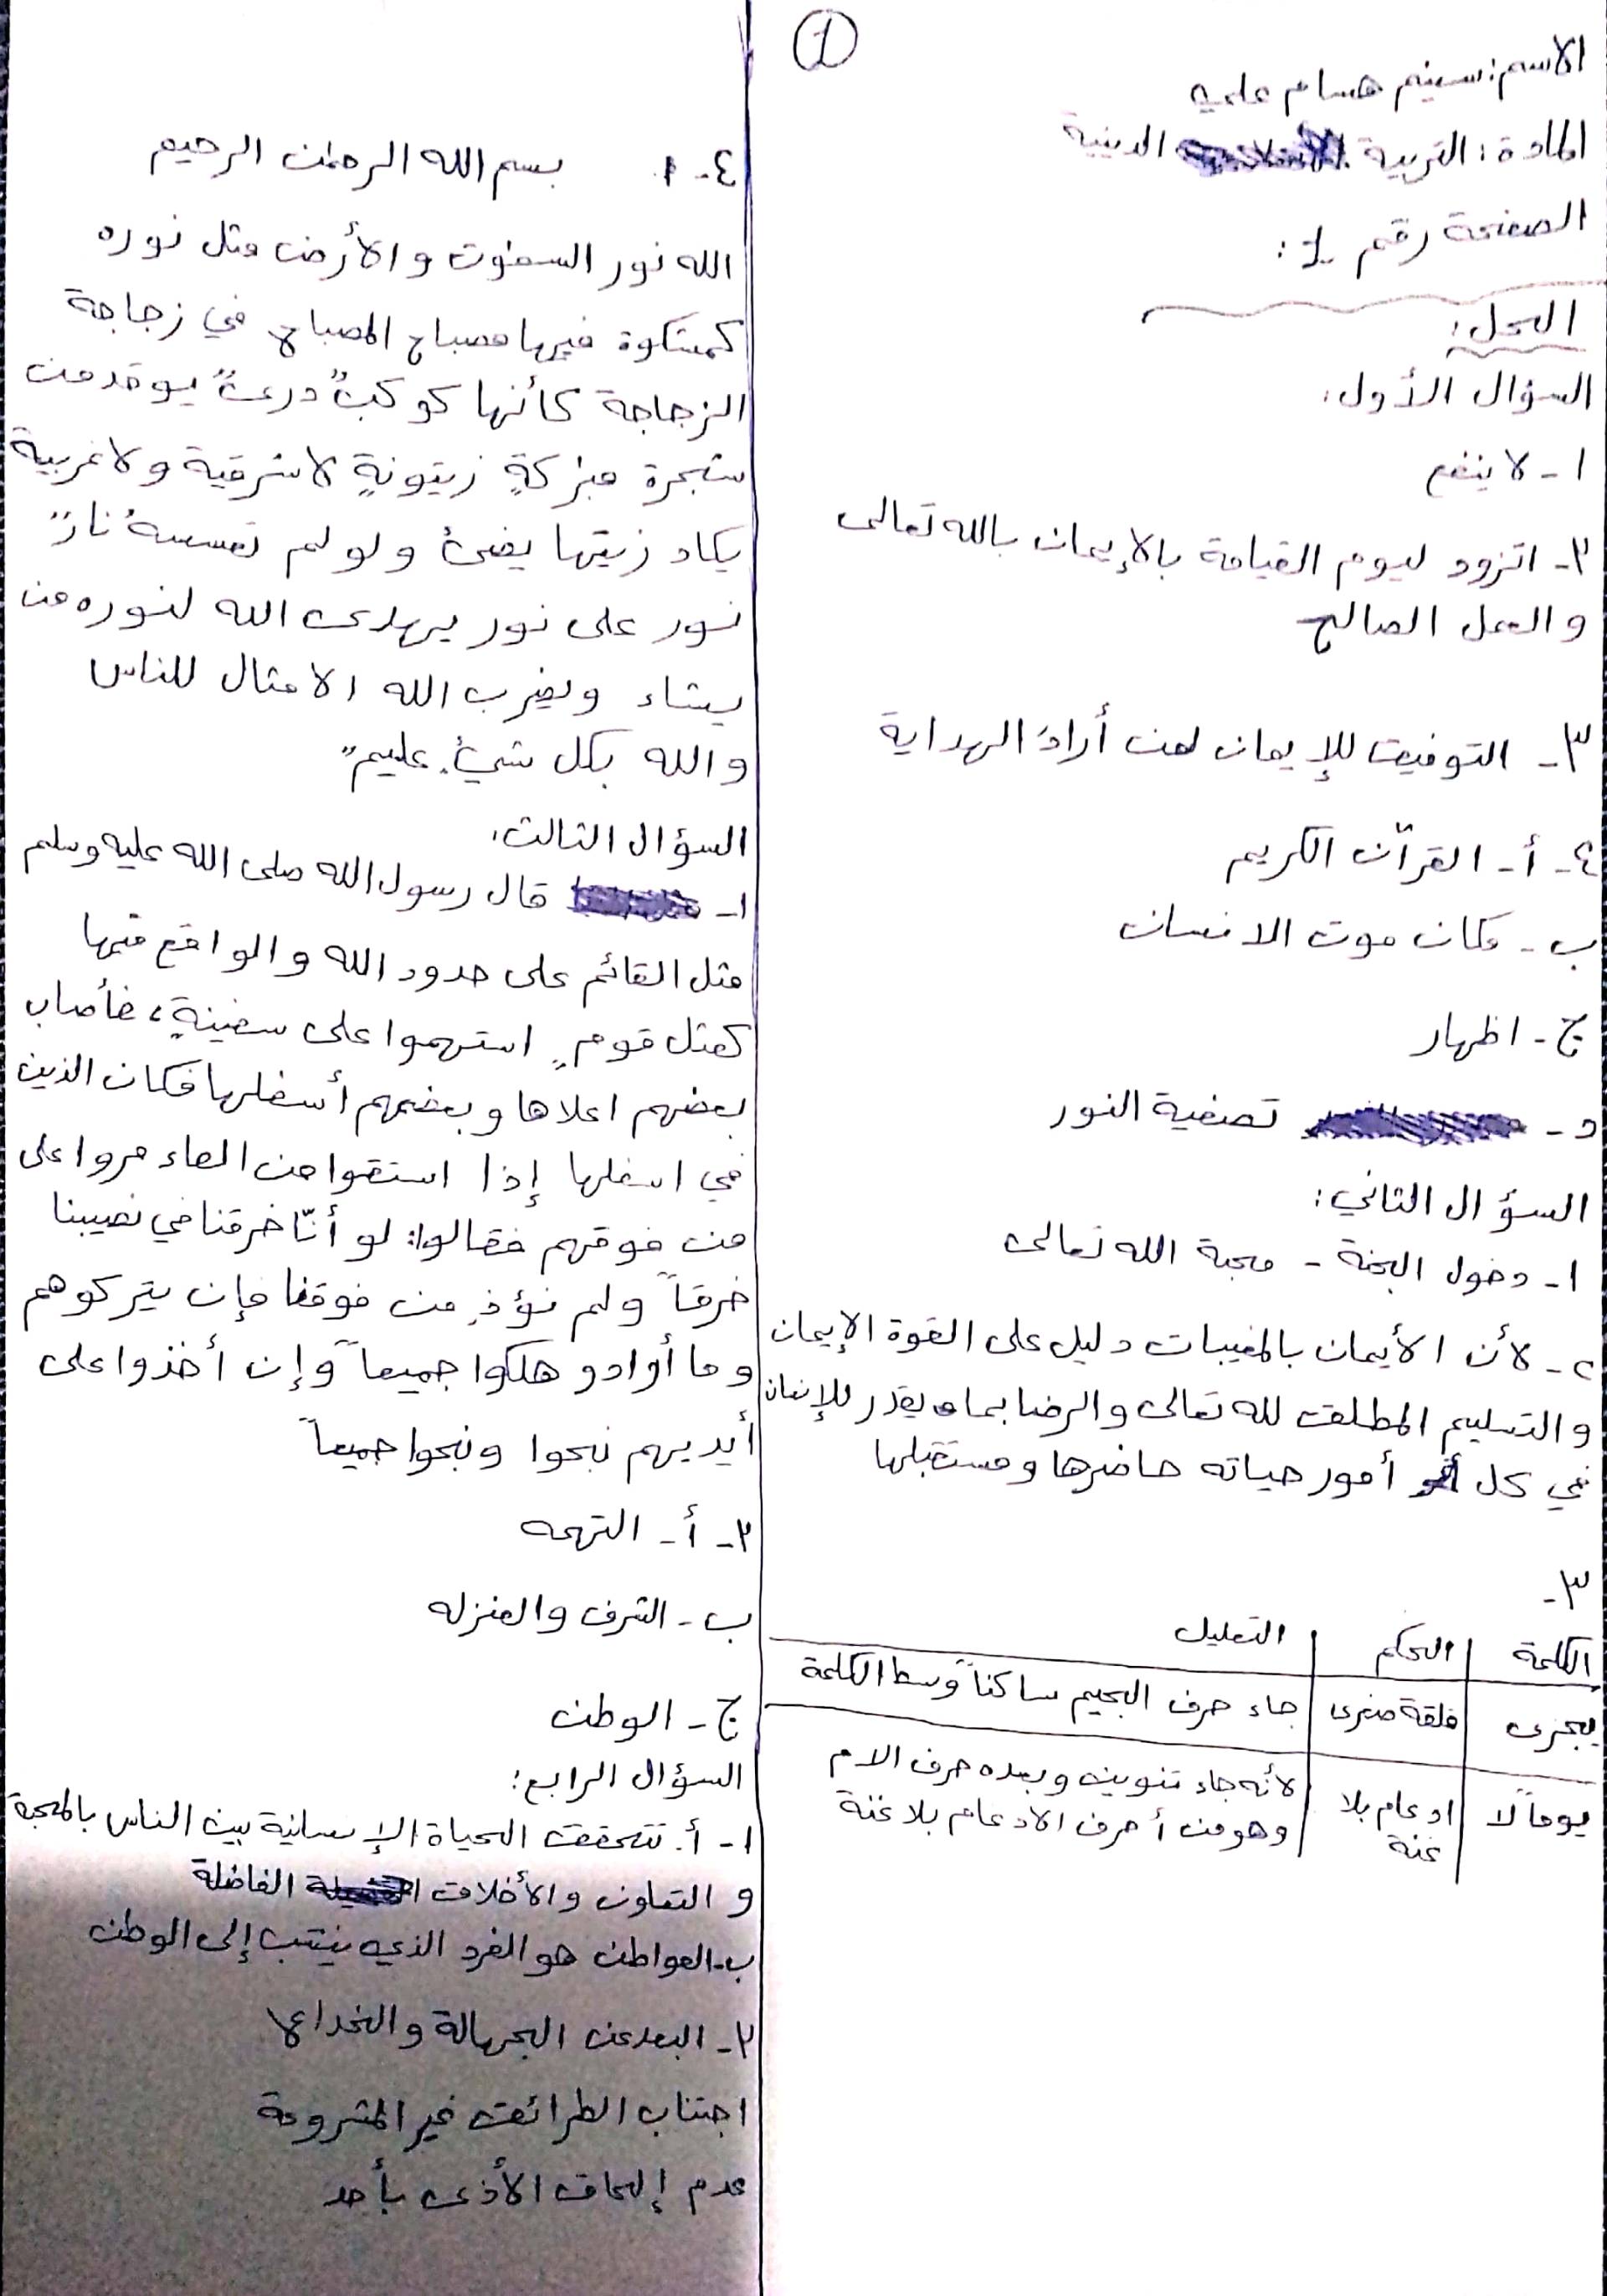 1
الاسم: سينم هسام علي
المادة: التربية الدينية
الصفحة رقم 1:
الحل:
السؤال الأول:
١- لا ينفع
٢- اتزود ليوم القيامة بالإيمان بالله تعالى
والعمل الصالح
٣- التوفيق للإيمان لمن أراد الهداية
٤- أ- القرآن الكريم
ب- مكان موت الانسان
ج- اظهار
د- تصفية النور
السؤال الثاني:
١- دخول الجنة - محبة الله تعالى
٢- لأن الأيمان بالمغيبات دليل على القوة الإيمان
والتسليم المطلق لله تعالى والرضا بما يقدر للإنسان
في كل أمور حياته حاضرها ومستقبلها
٣-
الكلمة الحكم التعليل
يجزى قلقة صغرى جاء حرف الجيم ساكناً وسط الكلمة
يوماً لا ادغام بلا غنة لأنه جاء تنوين وبعده حرف الام
وهو من أحرف الادغام بلا غنة
٤- ١. بسم الله الرحمن الرحيم
الله نور السموت والأرض مثل نوره
كمشكوة فيها مصباح المصباح في زجاجة
الزجاجة كأنها كوكبٌ دريٌ يوقد من
شجرة مبركةٍ زيتونةٍ لا شرقية ولا غربية
يكاد زيتها يضئ ولو لم تمسسهُ نارٌ
نور على نور يهدى الله لنوره من
يشاء ويضرب الله الامثال للناس
والله بكل شيء عليمٌ
السؤال الثالث:
١- قال رسول الله صلى الله عليه وسلم
مثل القائم على حدود الله والواقع فيها
كمثل قومٍ استهموا على سفينةٍ، فأصاب
بعضهم اعلاها وبعضهم أسفلها فكان الذين
في اسفلها إذا استقوا من الماء مروا على
من فوقهم فقالوا: لو أنّا خرقنا في نصيبنا
خرقاً ولم نؤذِ من فوقنا فإن يتركوهم
وما أرادو هلكوا جميعاً وإن أخذوا على
أيديهم نجوا ونجوا جميعاً
٢- أ- التهمه
ب- الشرف والمنزله
ج- الوطن
السؤال الرابع:
١- أ. تتحقق الحياة الإنسانية بين الناس بالمحبة
والتعاون والأخلاق الفاضلة
ب- المواطن هو الفرد الذي ينتسب إلى الوطن
٢- البعد عن الجهالة والخداع
اجتناب الطرائق غير المشروعة
عدم إلحاق الأذى بأحد